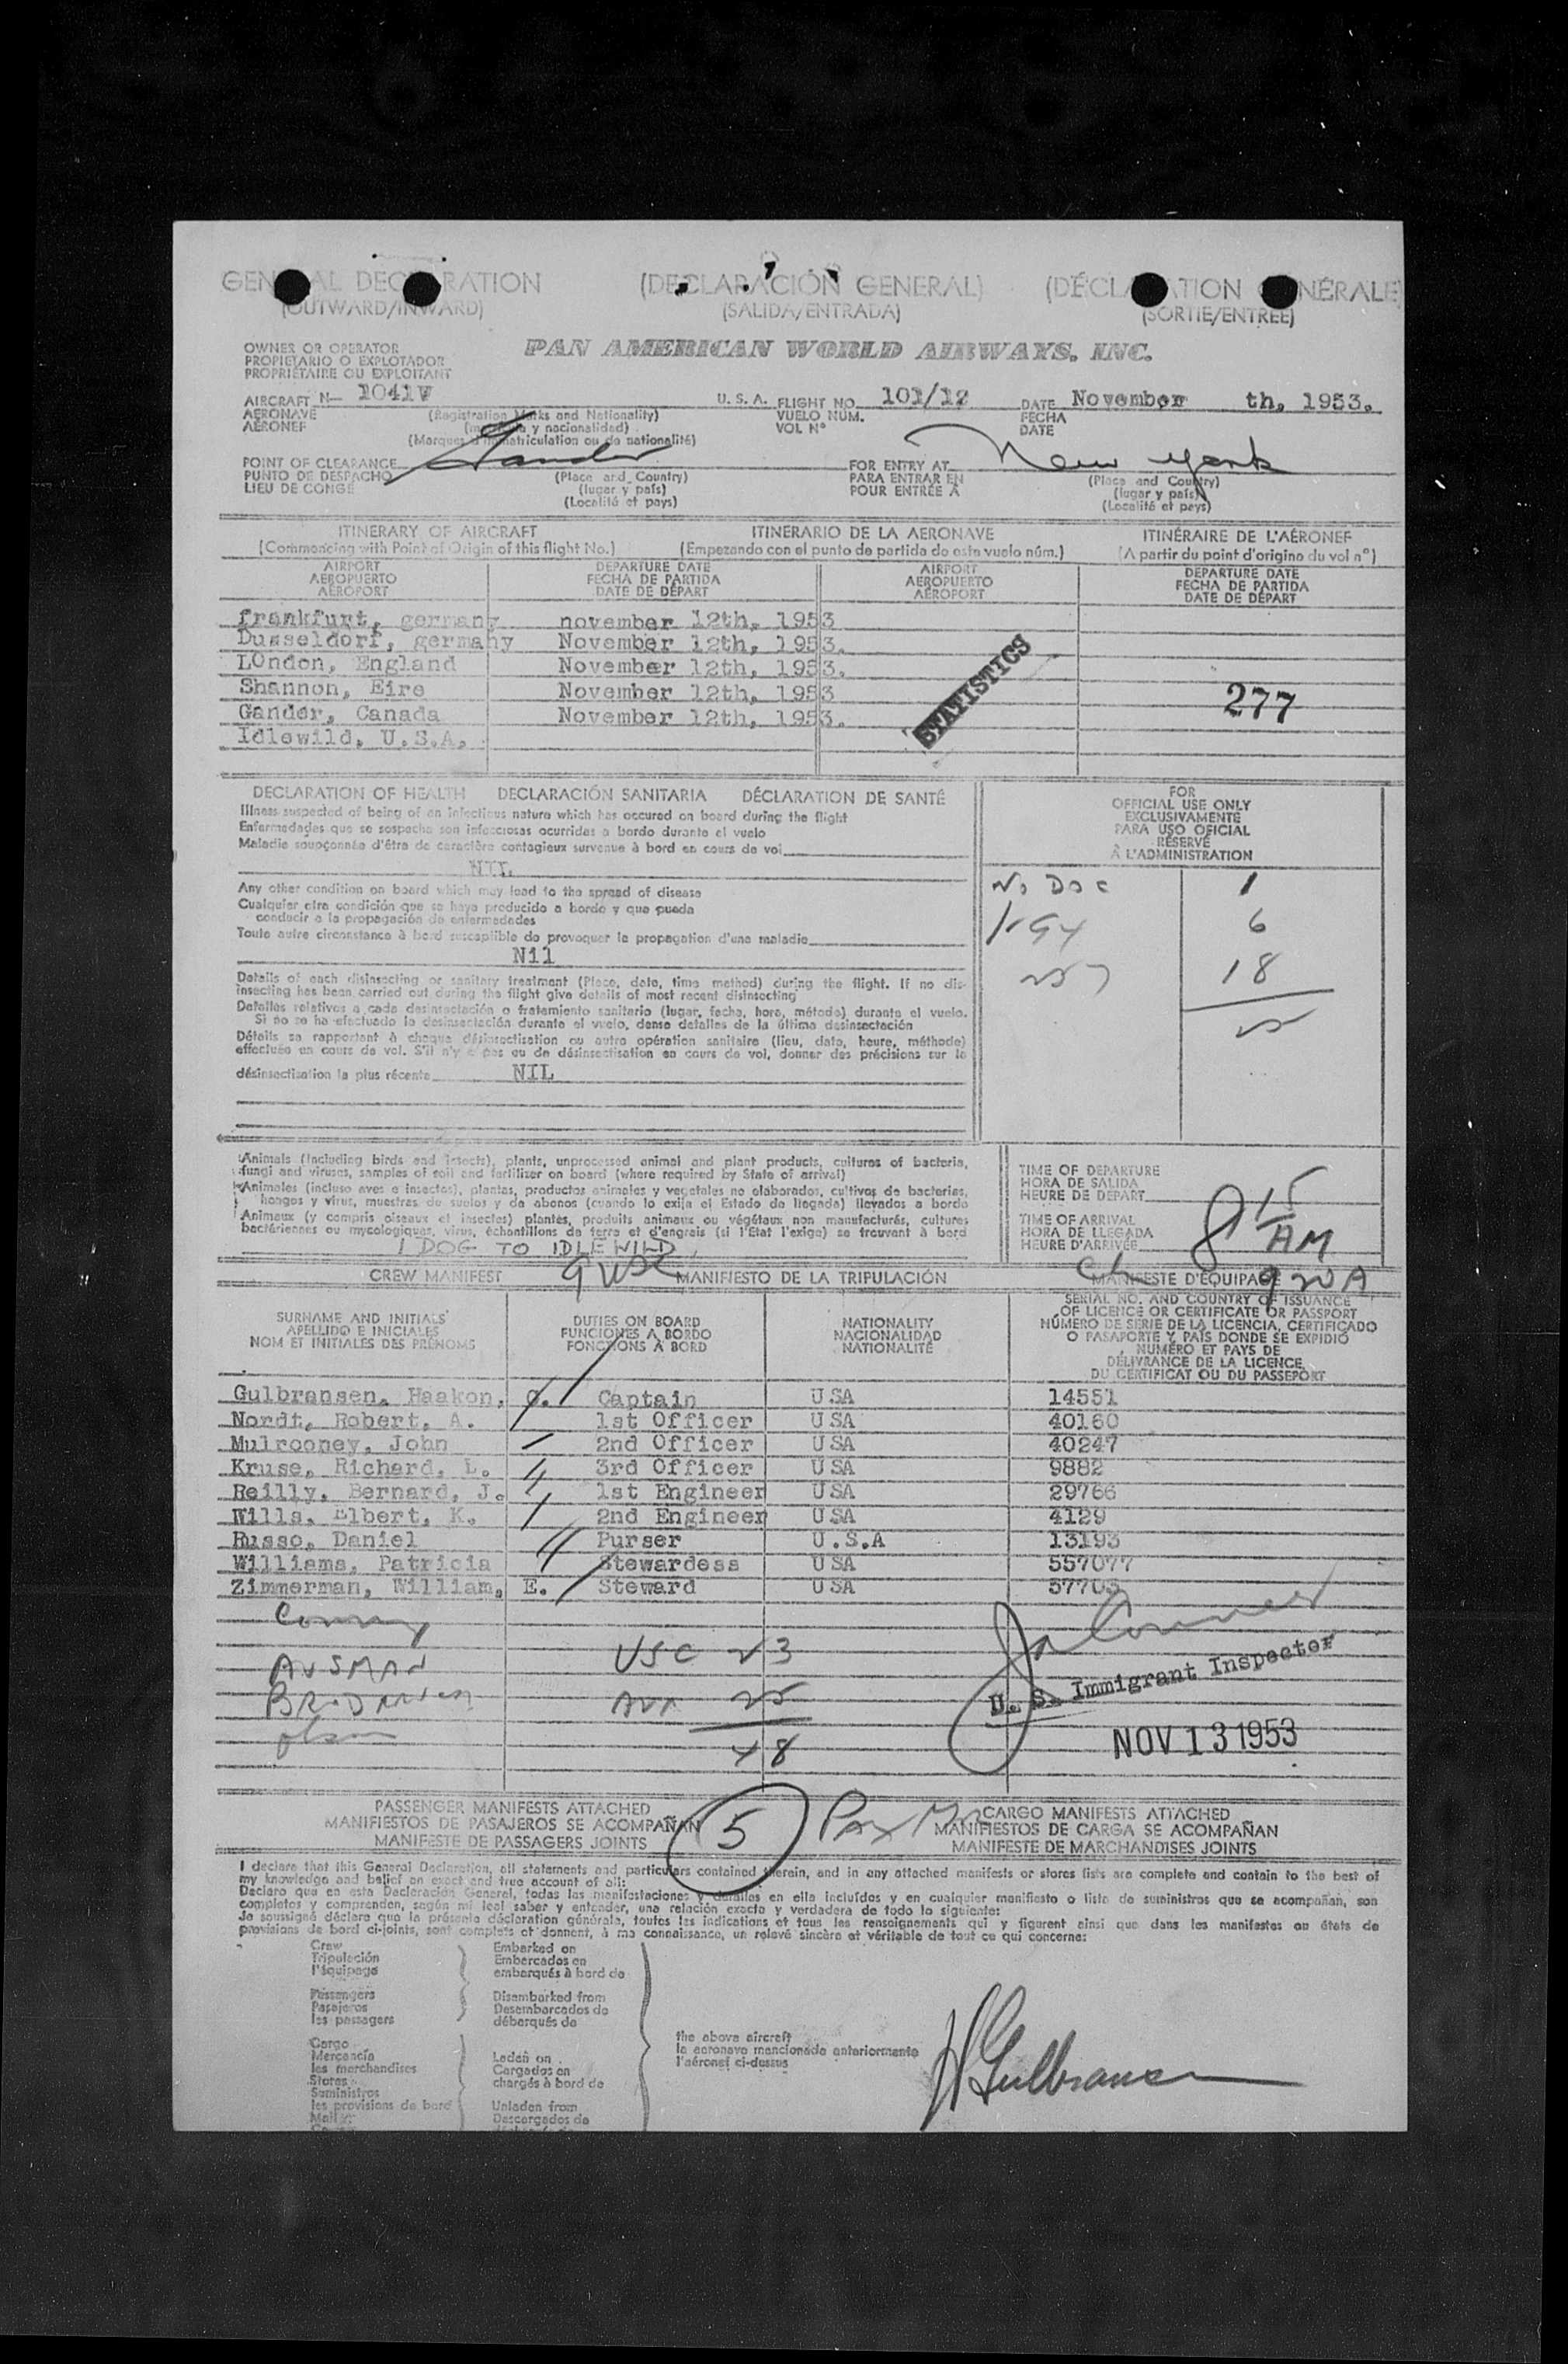 GENERAL DECLARATION (DECLARACIÓN GENERAL) (DÉCLARATION GÉNÉRALE)
(OUTWARD/INWARD) (SALIDA/ENTRADA) (SORTIE/ENTRÉE)
OWNER OR OPERATOR
PROPIETARIO O EXPLOTADOR
PROPRIÉTAIRE OU EXPLOITANT
PAN AMERICAN WORLD AIRWAYS, INC.
AIRCRAFT N- 1041V U.S.A. FLIGHT NO. 101/12 DATE November th, 1953.
AERONAVE (Registration Marks and Nationality) VUELO NÚM. FECHA
AÉRONEF (matrícula y nacionalidad) VOL Nº DATE
(Marques d'immatriculation ou de nationalité)
POINT OF CLEARANCE Gander FOR ENTRY AT New York
PUNTO DE DESPACHO (Place and Country) PARA ENTRAR EN (Place and Country)
LIEU DE CONGÉ (lugar y país) POUR ENTRÉE À (lugar y país)
(Localité et pays) (Localité et pays)
ITINERARY OF AIRCRAFT ITINERARIO DE LA AERONAVE ITINÉRAIRE DE L'AÉRONEF
(Commencing with Point of Origin of this flight No.) (Empezando con el punto de partida de este vuelo núm.) (A partir du point d'origine du vol nº)
AIRPORT DEPARTURE DATE AIRPORT DEPARTURE DATE
AEROPUERTO FECHA DE PARTIDA AEROPUERTO FECHA DE PARTIDA
AÉROPORT DATE DE DÉPART AÉROPORT DATE DE DÉPART
frankfurt, germany november 12th, 1953
Dusseldorf, germany November 12th, 1953.
LOndon, England November 12th, 1953.
Shannon, Eire November 12th, 1953
Gander, Canada November 12th, 1953.
Idlewild, U.S.A.
STATISTICS
277
DECLARATION OF HEALTH DECLARACIÓN SANITARIA DÉCLARATION DE SANTÉ
Illness suspected of being of an infectious nature which has occured on board during the flight
Enfermedades que se sospecha son infecciosas ocurridas a bordo durante el vuelo
Maladie soupçonnée d'être de caractère contagieux survenue à bord en cours de vol
NIL
Any other condition on board which may lead to the spread of disease
Cualquier otra condición que se haya producido a bordo y que pueda
conducir a la propagación de enfermedades
Toute autre circonstance à bord susceptible de provoquer la propagation d'une maladie
Nil
Details of each disinsecting or sanitary treatment (Place, date, time method) during the flight. If no dis-
insecting has been carried out during the flight give details of most recent disinsecting
Detalles relativos a cada desinsectación o tratamiento sanitario (lugar, fecha, hora, método) durante el vuelo.
Si no se ha efectuado la desinsectación durante el vuelo, dense detalles de la última desinsectación
Détails se rapportant à chaque désinsectisation ou autre opération sanitaire (lieu, date, heure, méthode)
effectuée en cours de vol. S'il n'y a pas eu de désinsectisation en cours de vol, donner des précisions sur la
désinsectisation la plus récente NIL
FOR
OFFICIAL USE ONLY
EXCLUSIVAMENTE
PARA USO OFICIAL
RÉSERVÉ
À L'ADMINISTRATION
No Doc 1
I-94 6
257 18
25
Animals (Including birds and insects), plants, unprocessed animal and plant products, cultures of bacteria,
fungi and viruses, samples of soil and fertilizer on board (where required by State of arrival)
Animales (incluso aves e insectos), plantas, productos animales y vegetales no elaborados, cultivos de bacterias,
hongos y virus, muestras de suelos y de abonos (cuando lo exija el Estado de llegada) llevados a bordo
Animaux (y compris oiseaux et insectes) plantes, produits animaux ou végétaux non manufacturés, cultures
bactériennes ou mycologiques, virus, échantillons de terre et d'engrais (si l'État l'exige) se trouvant à bord
1 DOG TO IDLEWILD
TIME OF DEPARTURE
HORA DE SALIDA
HEURE DE DÉPART
TIME OF ARRIVAL
HORA DE LLEGADA
HEURE D'ARRIVÉE
8 15 AM
9 USC
920A
CREW MANIFEST MANIFIESTO DE LA TRIPULACIÓN MANIFESTE D'ÉQUIPAGE
SURNAME AND INITIALS
APELLIDO E INICIALES
NOM ET INITIALES DES PRÉNOMS
DUTIES ON BOARD
FUNCIONES A BORDO
FONCTIONS À BORD
NATIONALITY
NACIONALIDAD
NATIONALITÉ
SERIAL NO. AND COUNTRY OF ISSUANCE
OF LICENCE OR CERTIFICATE OR PASSPORT
NÚMERO DE SERIE DE LA LICENCIA, CERTIFICADO
O PASAPORTE Y PAÍS DONDE SE EXPIDIÓ
NUMÉRO ET PAYS DE
DÉLIVRANCE DE LA LICENCE,
DU CERTIFICAT OU DU PASSEPORT
Gulbransen, Haakon, G. Captain USA 14551
Nordt, Robert, A. 1st Officer USA 40160
Mulrooney, John 2nd Officer USA 40247
Kruse, Richard, L. 3rd Officer USA 9882
Reilly, Bernard, J. 1st Engineer USA 29766
Wills, Elbert, K. 2nd Engineer USA 4129
Russo, Daniel Purser U.S.A 13193
Williams, Patricia Stewardess USA 557077
Zimmerman, William, E. Steward USA 57703
USC 23
25
48
U. S. Immigrant Inspector
NOV 13 1953
PASSENGER MANIFESTS ATTACHED CARGO MANIFESTS ATTACHED
MANIFIESTOS DE PASAJEROS SE ACOMPAÑAN 5 Pax MANIFIESTOS DE CARGA SE ACOMPAÑAN
MANIFESTE DE PASSAGERS JOINTS MANIFESTE DE MARCHANDISES JOINTS
I declare that this General Declaration, all statements and particulars contained therein, and in any attached manifests or stores lists are complete and contain to the best of
my knowledge and belief an exact and true account of all:
Declaro que en esta Declaración General, todas las manifestaciones y detalles en ella incluídos y en cualquier manifiesto o lista de suministros que se acompañan, son
completos y comprenden, según mi leal saber y entender, una relación exacta y verdadera de todo lo siguiente:
Je soussigné déclare que la présente déclaration générale, toutes les indications et tous les renseignements qui y figurent ainsi que dans les manifestes ou états de
provisions de bord ci-joints, sont complets et donnent, à ma connaissance, un relevé sincère et véritable de tout ce qui concerne:
Crew Embarked on
Tripulación Embarcados en
l'équipage embarqués à bord de
Passengers Disembarked from
Pasajeros Desembarcados de
les passagers débarqués de
Cargo
Mercancía Laden on
les merchandises Cargados en
Stores chargés à bord de
Suministros
les provisions de bord Unladen from
Mail Descargados de
the above aircraft
la aeronave mencionada anteriormente
l'aéronef ci-dessus
H Gulbransen